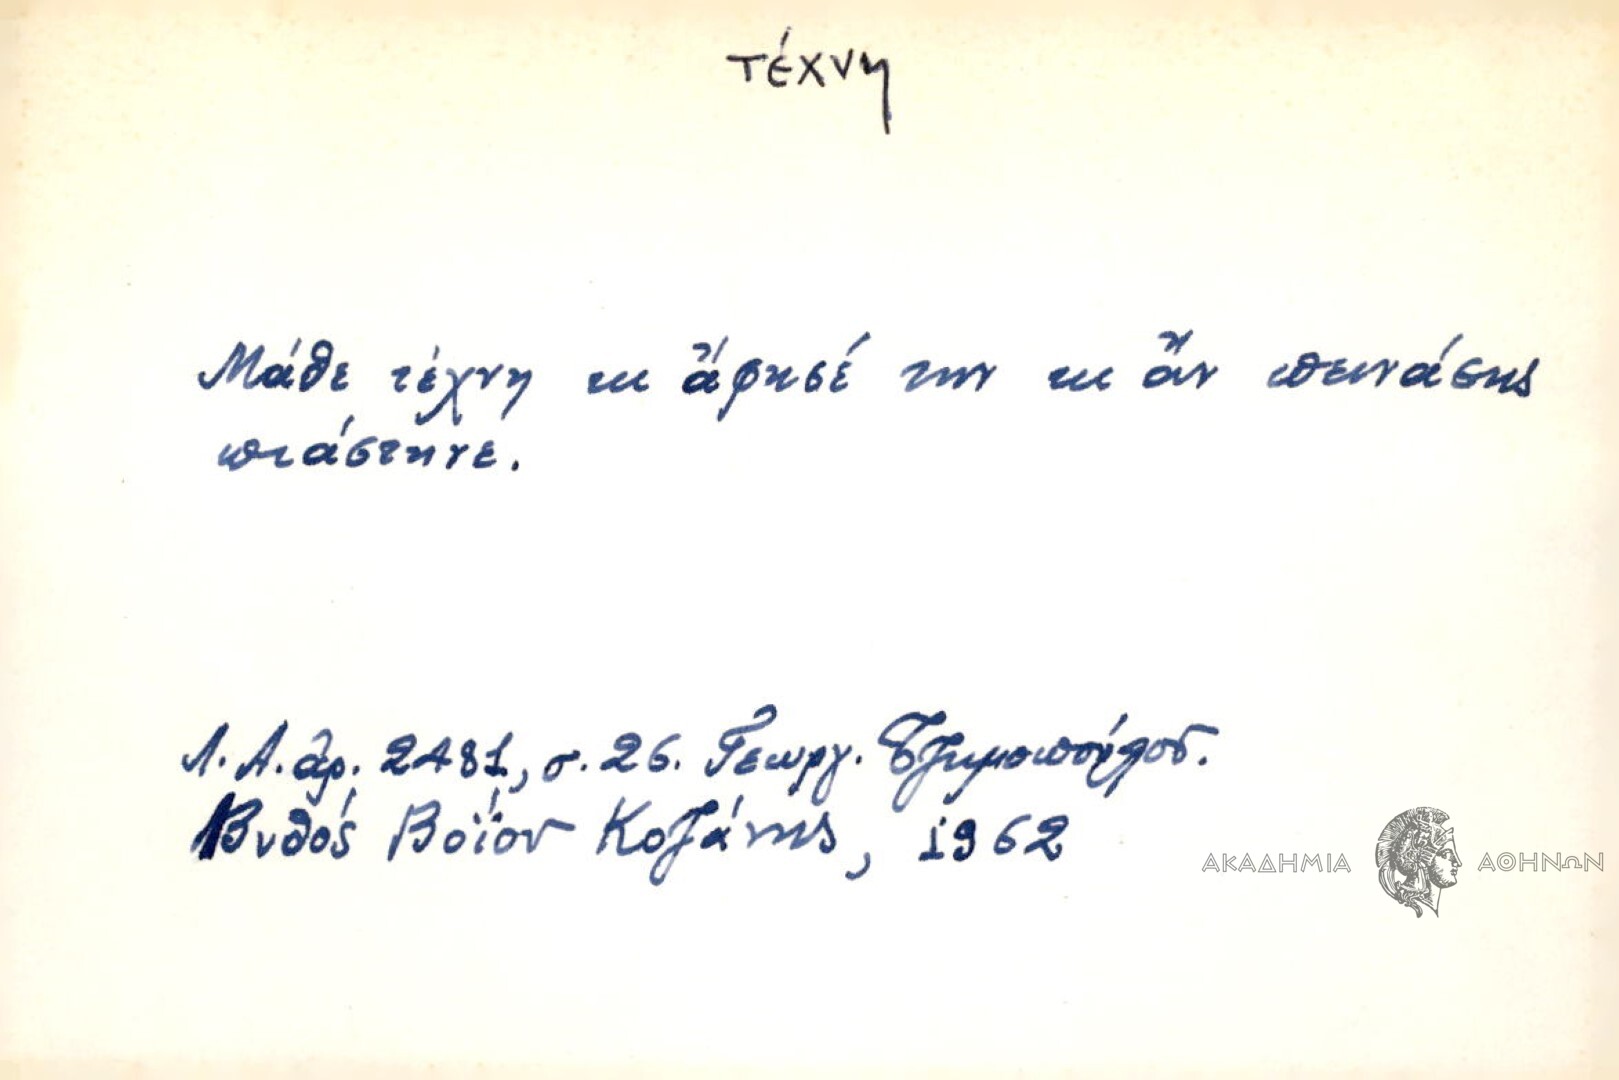 τέχνη
Μάθε τέχνη κι ἄφησέ την κι ἄν πεινάσης
πιάστηνε.
Λ.Α. ἀρ. 2481, σ. 26. Γεωργ. Τζημοπούλου.
Βυθός Βοΐου Κοζάνης, 1962
ΑΚΑΔΗΜΙΑ ΑΘΗΝΩΝ